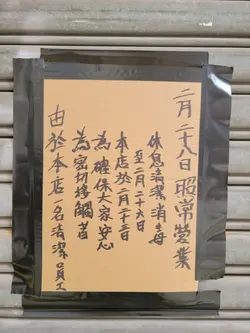 由於本店一名清潔員工
為密切接觸者
為確保大家安心
本店於二月二十三日
至二月二十六日
休息清潔消毒
二月二十八日照常營業